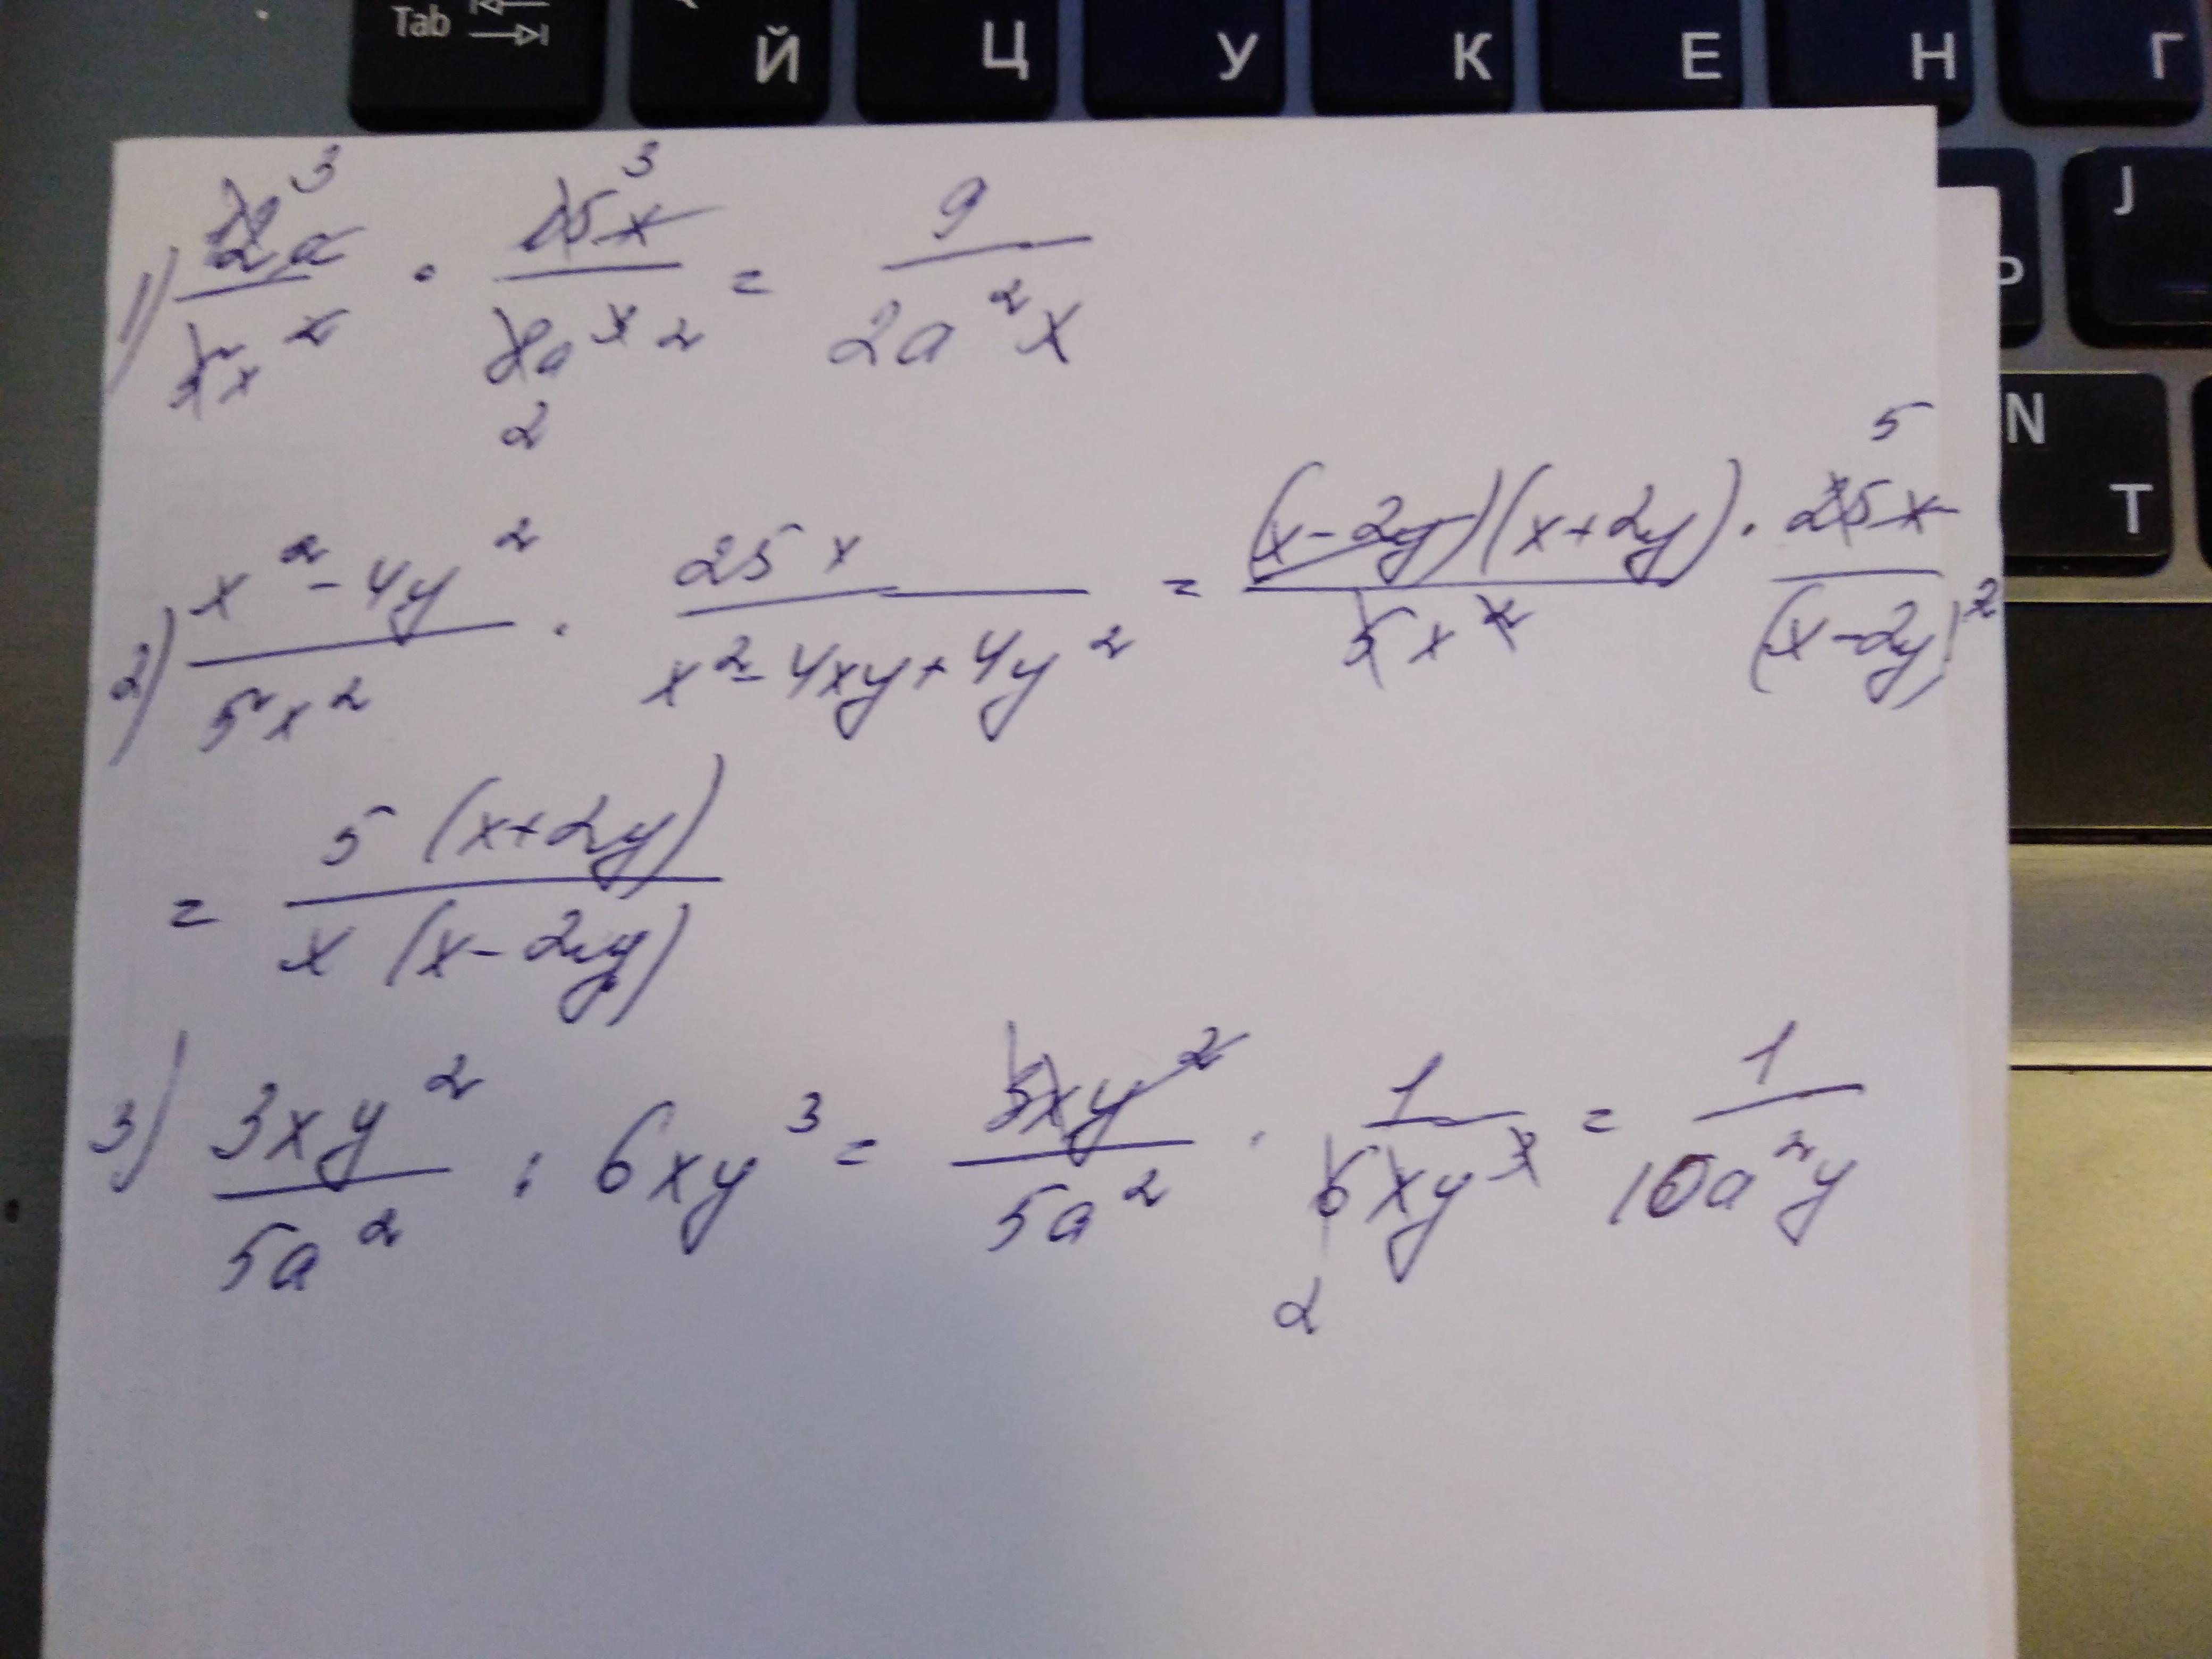 Tab Й Ц У К Е Н Г
J
Ь
N
Т
1) 12a/5x² · 15x/8a³ = 9/2a²x
2) x²-4y²/5x² · 25x/x²-4xy+4y² = (x-2y)(x+2y)/5x² · 25x/(x-2y)²
= 5(x+2y)/x(x-2y)
3) 3xy²/5a² : 6xy³ = 3xy²/5a² · 1/6xy³ = 1/10a²y